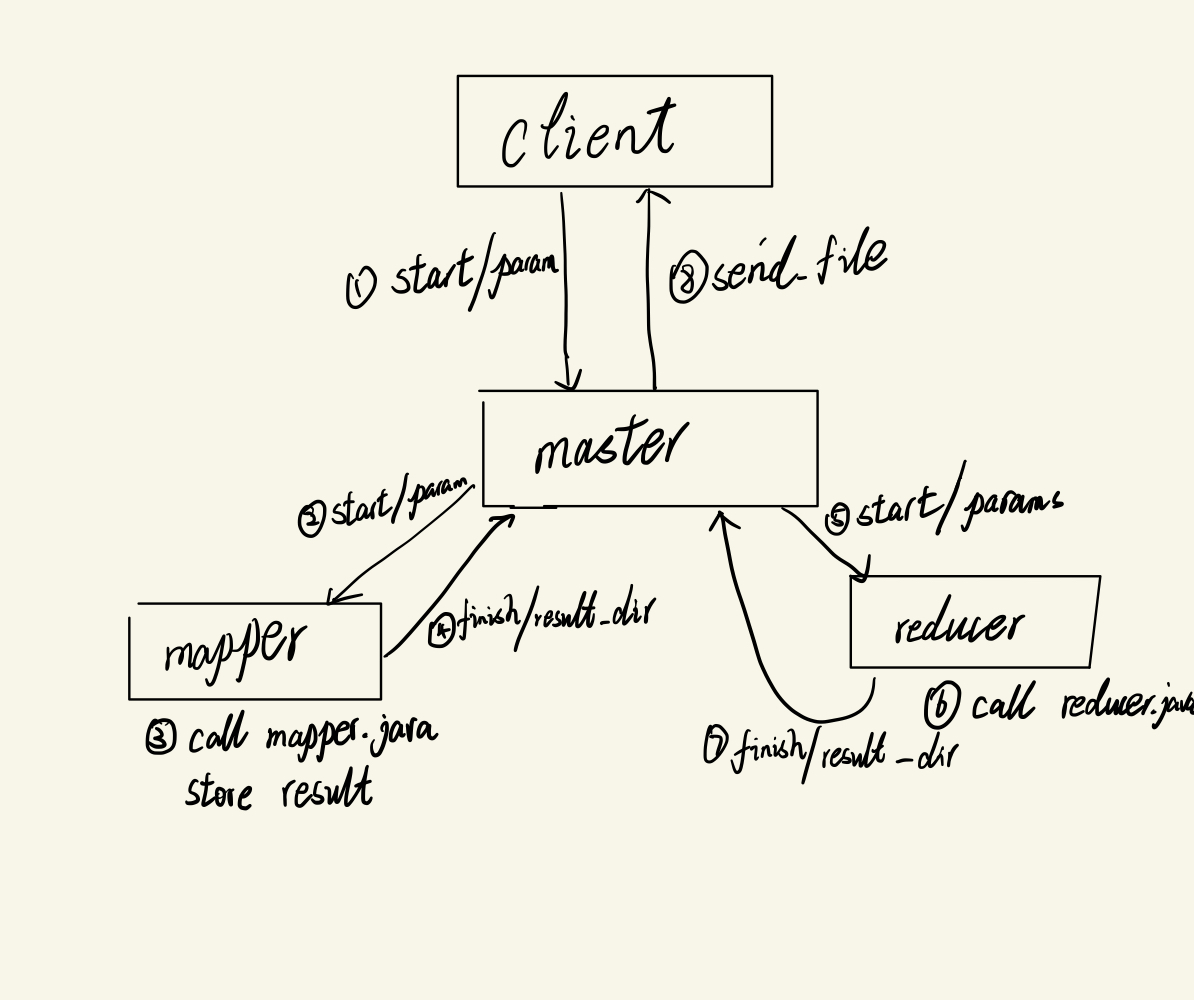 client
① start/param
⑧ send_file
master
② start/param
⑤ start/params
④ finish/result_dir
mapper
reducer
③ call mapper.java
store result
⑥ call reducer.java
⑦ finish/result_dir